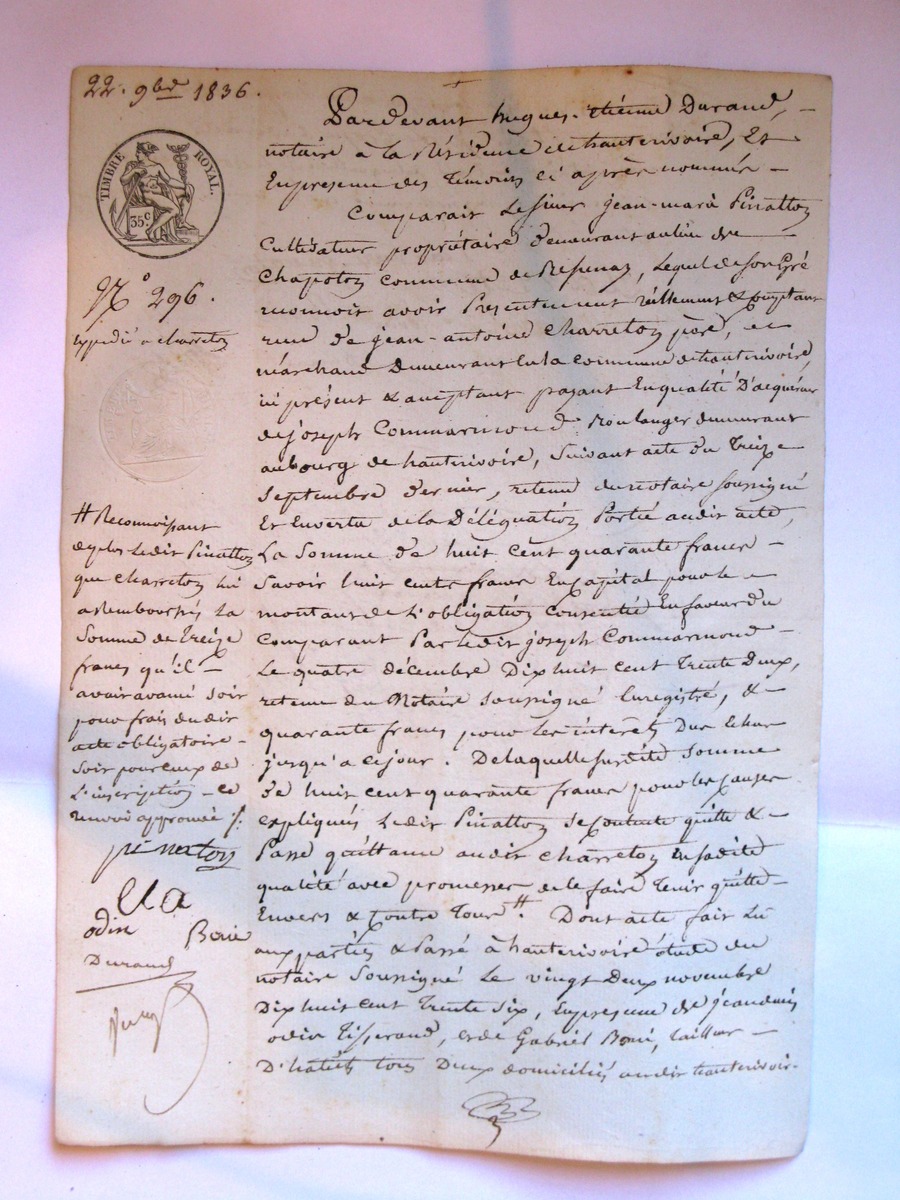 22. 9bre 1836.
TIMBRE ROYAL.
35 c
N.o 296.
expédié à charretoy
Pardevant hugues-etienne Durand,
notaire à la Résidence de hauterivoire, Et
En presence des Témoins ci après nommés
Comparait Le sieur jean-marie Pinattoy
Cultivateur propriétaire demeurant au lieu de
Chapotoy commune de , Lequel de Son Gré
reconnoit avoir Présentement réellement & comptant
recu de jean-antoine Charretoy père,
marchand demeurant En la commune de hauterivoire,
ici présent & acceptant payant En qualité D'acquéreur
de joseph Commarmond Boulanger demeurant
au bourg de hauterivoire, Suivant acte du Treize
Septembre dernier, retenu du notaire soussigné
Et En vertu de la Déléguatioy Portée audit acte,
La Somme de huit cent quarante francs
Savoir huit cents francs En capital pour le
montant de L'obligatioy Consentie En faveur du
Comparant Par ledit joseph Commarmond
Le quatre décembre Dix huit cent Trente Deux,
retenue du Notaire soussigné Enregistré, &
quarante francs pour les intérets Dus Echus
jusqu'a ce jour. De laquelle susdite Somme
de huit cent quarante francs pour les causes
expliqués Ledit Pinattoy se contente quitte &
Passe quittance audit Charretoy En sadite
qualité avec promesse de le faire Tenir quitte
Envers & Contre Tous #. Dont acte fait Lu
aux parties & Passé à hauterivoire étude du
notaire Soussigné Le vingt Deux novembre
Dix huit cent Trente Six, En presence de jean denis
odin Tisserand, et de Gabriel Boni, tailleur
D'habits tous Deux domiciliés audit hauterivoir-
# Reconnoissant
de plus Ledit Pinattoy
que Charretoy lui
a Remboursés La
Somme de Treize
francs qu'il
avait avancé soit
pour frais dudit
acte obligatoire
soit pour ceux de
L'inscriptioy ce
renvoi approuvé ./.
pinatoy
odin Boni
Durand